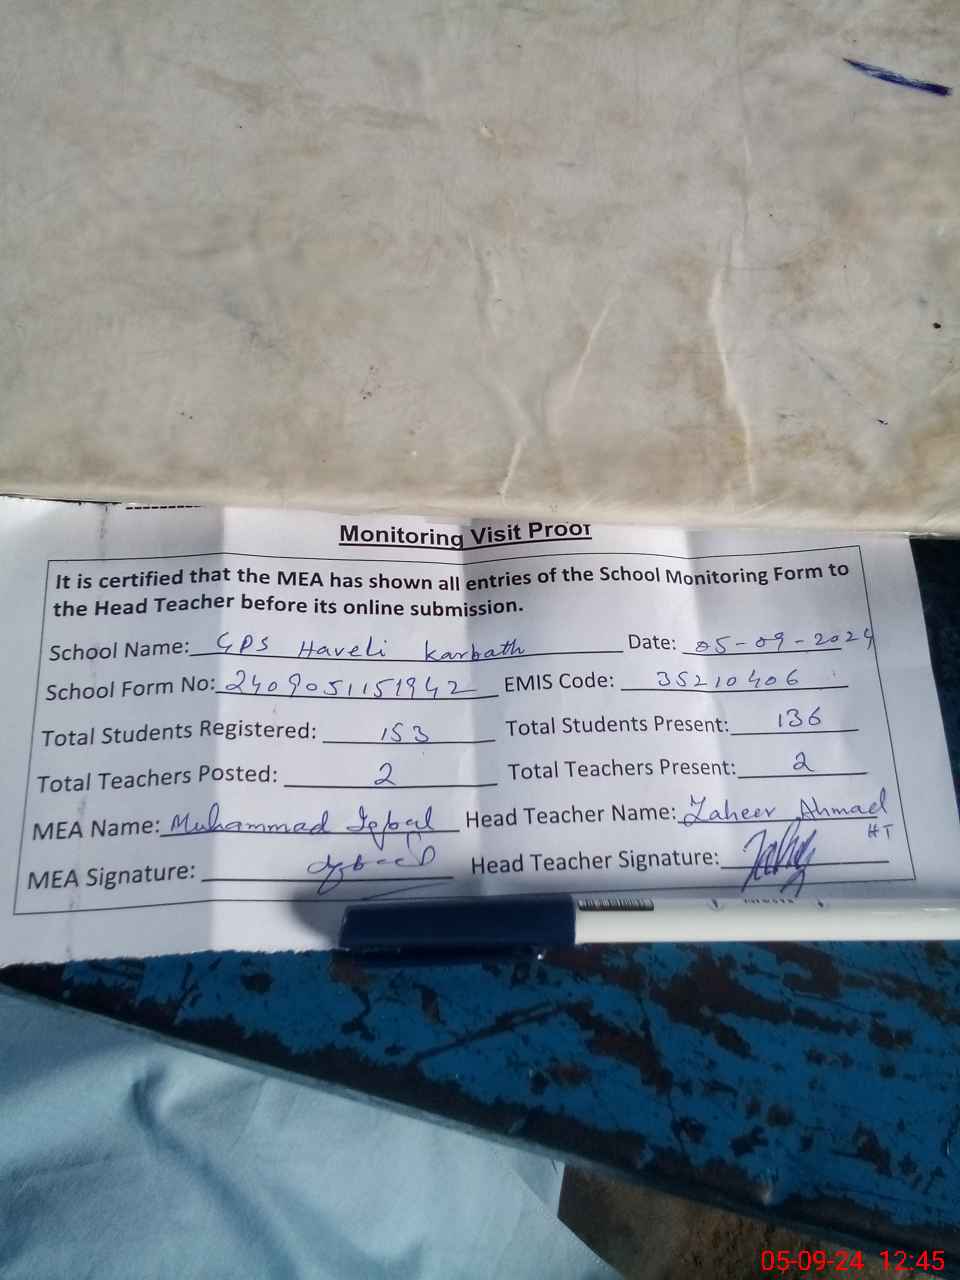 Monitoring Visit Proof
It is certified that the MEA has shown all entries of the School Monitoring Form to
the Head Teacher before its online submission.
School Name: GPS Haveli Karbath Date: 05-09-2024
School Form No: 2409051151942 EMIS Code: 35210406
Total Students Registered: 153 Total Students Present: 136
Total Teachers Posted: 2 Total Teachers Present: 2
MEA Name: Muhammad Iqbal Head Teacher Name: Zaheer Ahmad
HT
MEA Signature: Head Teacher Signature:
05-09-24 12:45